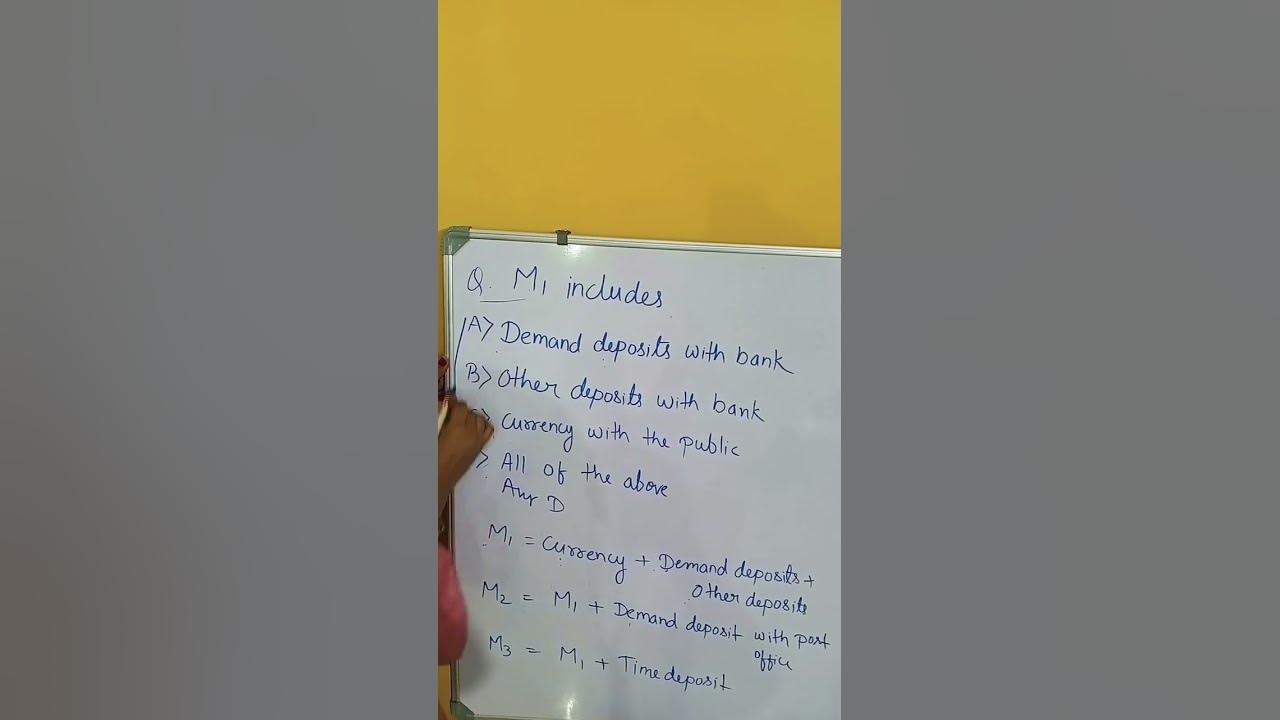 Q. M1 includes
A> Demand deposits with bank
B> Other deposits with bank
> Currency with the public
> All of the above
Ans D
M1 = Currency + Demand deposits +
Other deposits
M2 = M1 + Demand deposit with post
office
M3 = M1 + Time deposit